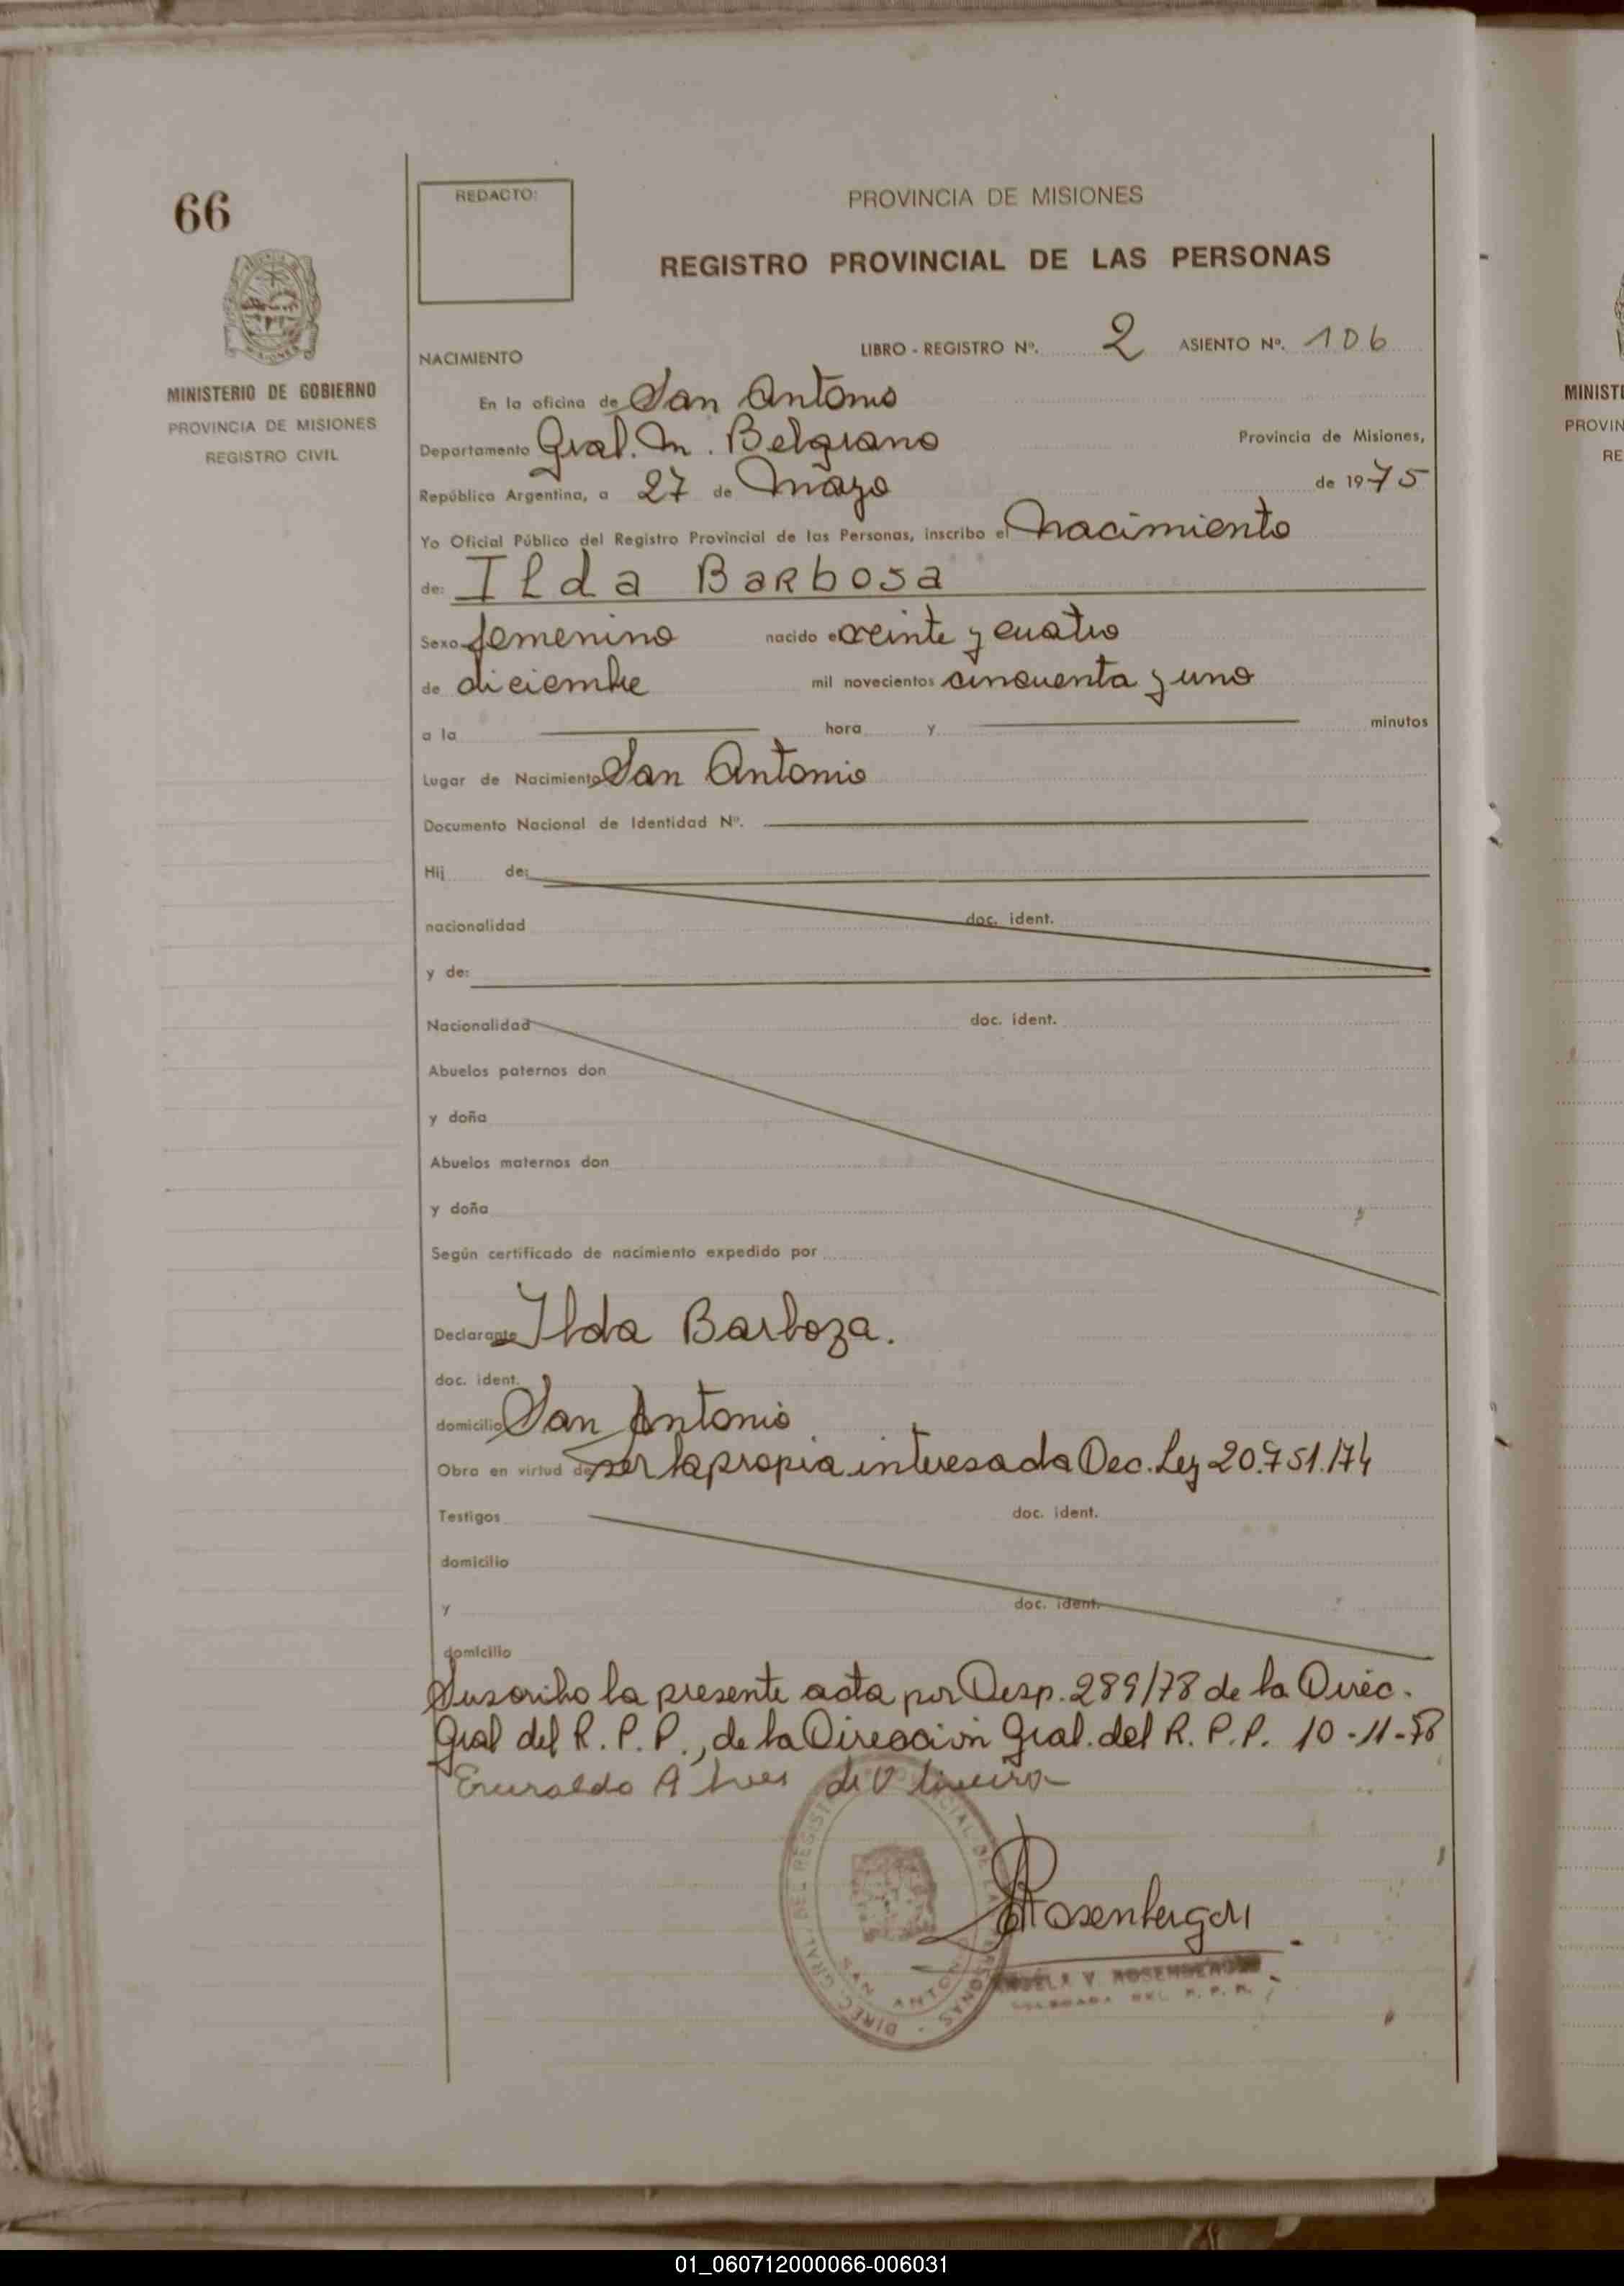 66
REDACTO:
PROVINCIA DE MISIONES
REGISTRO PROVINCIAL DE LAS PERSONAS
MINISTERIO DE GOBIERNO
PROVINCIA DE MISIONES
REGISTRO CIVIL
LIBRO - REGISTRO Nº. 2 ASIENTO Nº. 106
NACIMIENTO
En la oficina de San Antonio
Departamento Gral. M. Belgrano Provincia de Misiones,
República Argentina, a 27 de Mayo de 1975
Yo Oficial Público del Registro Provincial de las Personas, inscribo el Nacimiento
de: Ilda Barbosa
Sexo femenino nacido el veinte y cuatro
de diciembre mil novecientos cincuenta y uno
a la hora y minutos
Lugar de Nacimiento San Antonio
Documento Nacional de Identidad Nº.
Hij de:
nacionalidad doc. ident.
y de:
Nacionalidad doc. ident.
Abuelos paternos don
y doña
Abuelos maternos don
y doña
Según certificado de nacimiento expedido por
Declarante Ilda Barboza.
doc. ident.
domicilio San Antonio
Obra en virtud de ser la propia interesada Dec. Ley 20.751/74
Testigos doc. ident.
domicilio
y doc. ident.
domicilio
Suscribo la presente acta por Disp. 289/78 de la Direc.
Gral del R. P. P., de la Dirección Gral. del R. P. P. 10-11-78
Rosenberger
DIREC. GRAL DEL REGISTRO PROVINCIAL DE LAS PERSONAS
SAN ANTONIO
MINIST
PROVIN
RE
01_060712000066-006031